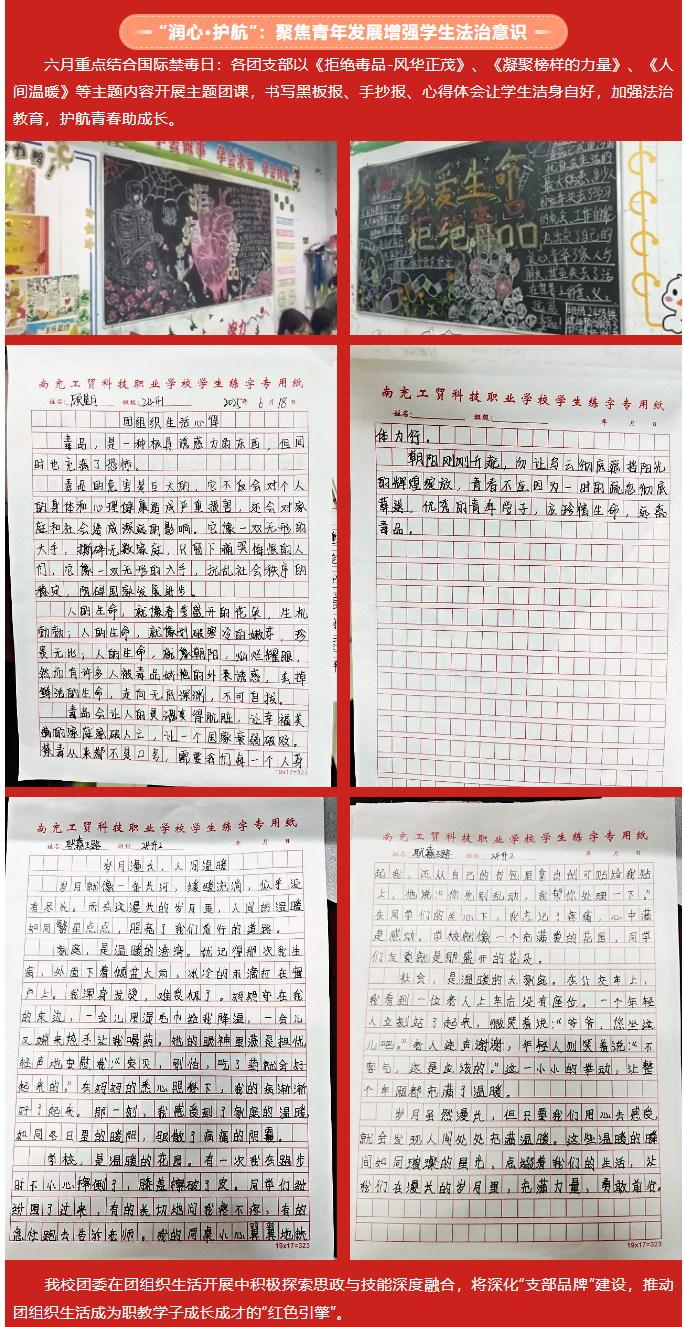 “润心·护航”：聚焦青年发展增强学生法治意识
六月重点结合国际禁毒日：各团支部以《拒绝毒品-风华正茂》、《凝聚榜样的力量》、《人
间温暖》等主题内容开展主题团课，书写黑板报、手抄报、心得体会让学生洁身自好，加强法治
教育，护航青春助成长。
学会做事 学会求知 学会共处
拒绝毒品
珍爱生命
拒绝毒品
南充工贸科技职业学校学生练字专用纸
姓名： 班级：24升1 2025年 6月 18日
团组织生活心得
毒品，是一种极具诱惑力的东西，但同
时也充满了恐怖。
毒品的危害是巨大的，它不仅会对个人
的身体和心理健康造成严重损害，还会对家
庭和社会造成深远的影响。它像一双无形的
大手，撕碎无数家庭，只留下痛哭悔恨的人
们，它像一双无形的大手，扰乱社会秩序的
稳定，阻碍国家发展进步。
人的生命，就像春季盛开的花朵，生机
勃勃；人的生命，就像划破寒冷的嫩芽，珍
贵无比；人的生命，就像朝阳，灿烂耀眼，
然而有许多人被毒品妖艳的外表诱惑，丢掉
鲜活的生命，走向无底深渊，不可自拔。
毒品会让人的灵魂变得肮脏，让幸福美
满的家庭家破人亡，让一个国家衰弱破败。
禁毒从来都不是口号，需要我们每一个人身
19×17=323
南充工贸科技职业学校学生练字专用纸
姓名： 班级： 年 月 日
体力行。
朝阳刚刚升起，勿让乌云彻底遮挡阳光
的辉煌绽放，青春不应因为一时的疏忽彻底
葬送，优秀的青年学子，应珍惜生命，远离
毒品。
南充工贸科技职业学校学生练字专用纸
姓名： 班级：24升2 年 月 日
岁月漫长，人间温暖
岁月就像一条长河，缓缓流淌，似乎没
有尽头。而在这漫长的岁月里，人间的温暖
如同繁星点点，照亮了我们前行的道路。
家庭，是温暖的港湾。犹记得那次我生
病，外面下着倾盆大雨，冰冷的雨滴打在窗
户上。我浑身发烫，难受极了。妈妈守在我
的床边，一会儿用湿毛巾给我降温，一会儿
又端来热水让我喝药。她的眼神里满是担忧
轻声地安慰我：“宝贝，别怕，吃了药就会好
起来的。”在妈妈的悉心照顾下，我的病渐渐
好了起来。那一刻，我感受到了家庭的温暖，
如同冬日里的暖阳，驱散了病痛的阴霾。
学校，是温暖的花园。有一次我在跑步
时不小心摔倒了，膝盖擦破了皮。同学们纷
纷围了过来，有的关切地问我疼不疼，有的
急忙跑去告诉老师。我的同桌小心翼翼地扶
19×17=323
南充工贸科技职业学校学生练字专用纸
姓名： 班级：24升2 年 月 日
起我，还从自己的书包里拿出创可贴给我贴
上，他说：“你先别乱动，我帮你处理一下。”
在同学们的关心下，我忘记了疼痛，心中满
是感动。学校就像一个充满爱的花园，同学
们友爱就是那盛开的花朵。
社会，是温暖的大家庭。在公交车上，
我看到一位老人上车后没有座位。一个年轻
人立刻站了起来，微笑着说：“爷爷，您坐这
儿吧。”老人连声谢谢，年轻人则笑着说：“不
客气，这是应该的。”这一小小的举动，让整
个车厢都充满了温暖。
岁月虽然漫长，但只要我们用心去感受，
就会发现人间处处充满温暖。这些温暖的瞬
间如同璀璨的星光，点缀着我们的生活，让
我们在漫长的岁月里，充满力量，勇敢前行。
19×17=323
我校团委在团组织生活开展中积极探索思政与技能深度融合，将深化“支部品牌”建设，推动
团组织生活成为职教学子成长成才的“红色引擎”。